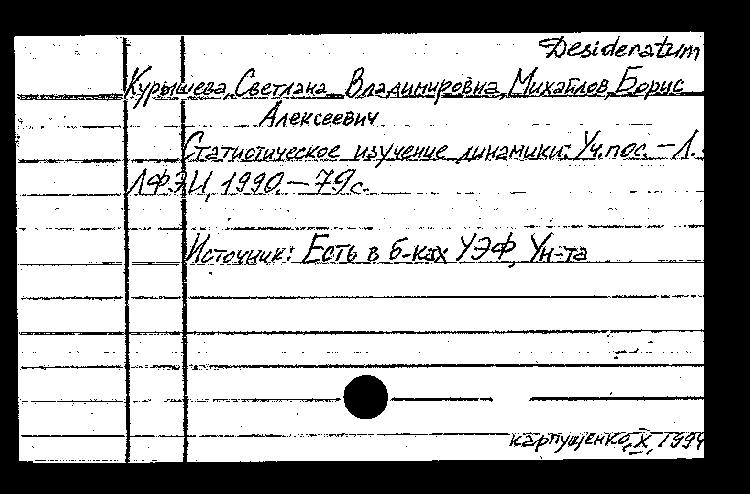 Desideratum
Курышева, Светлана Владимировна, Михайлов, Борис
Алексеевич
Статистическое изучение динамики: Уч. пос. – Л.:
ЛФЭИ, 1990. – 79 с.
Источник: Есть в б-ках УЭФ, Ун-та
Карпущенко, X, 1994